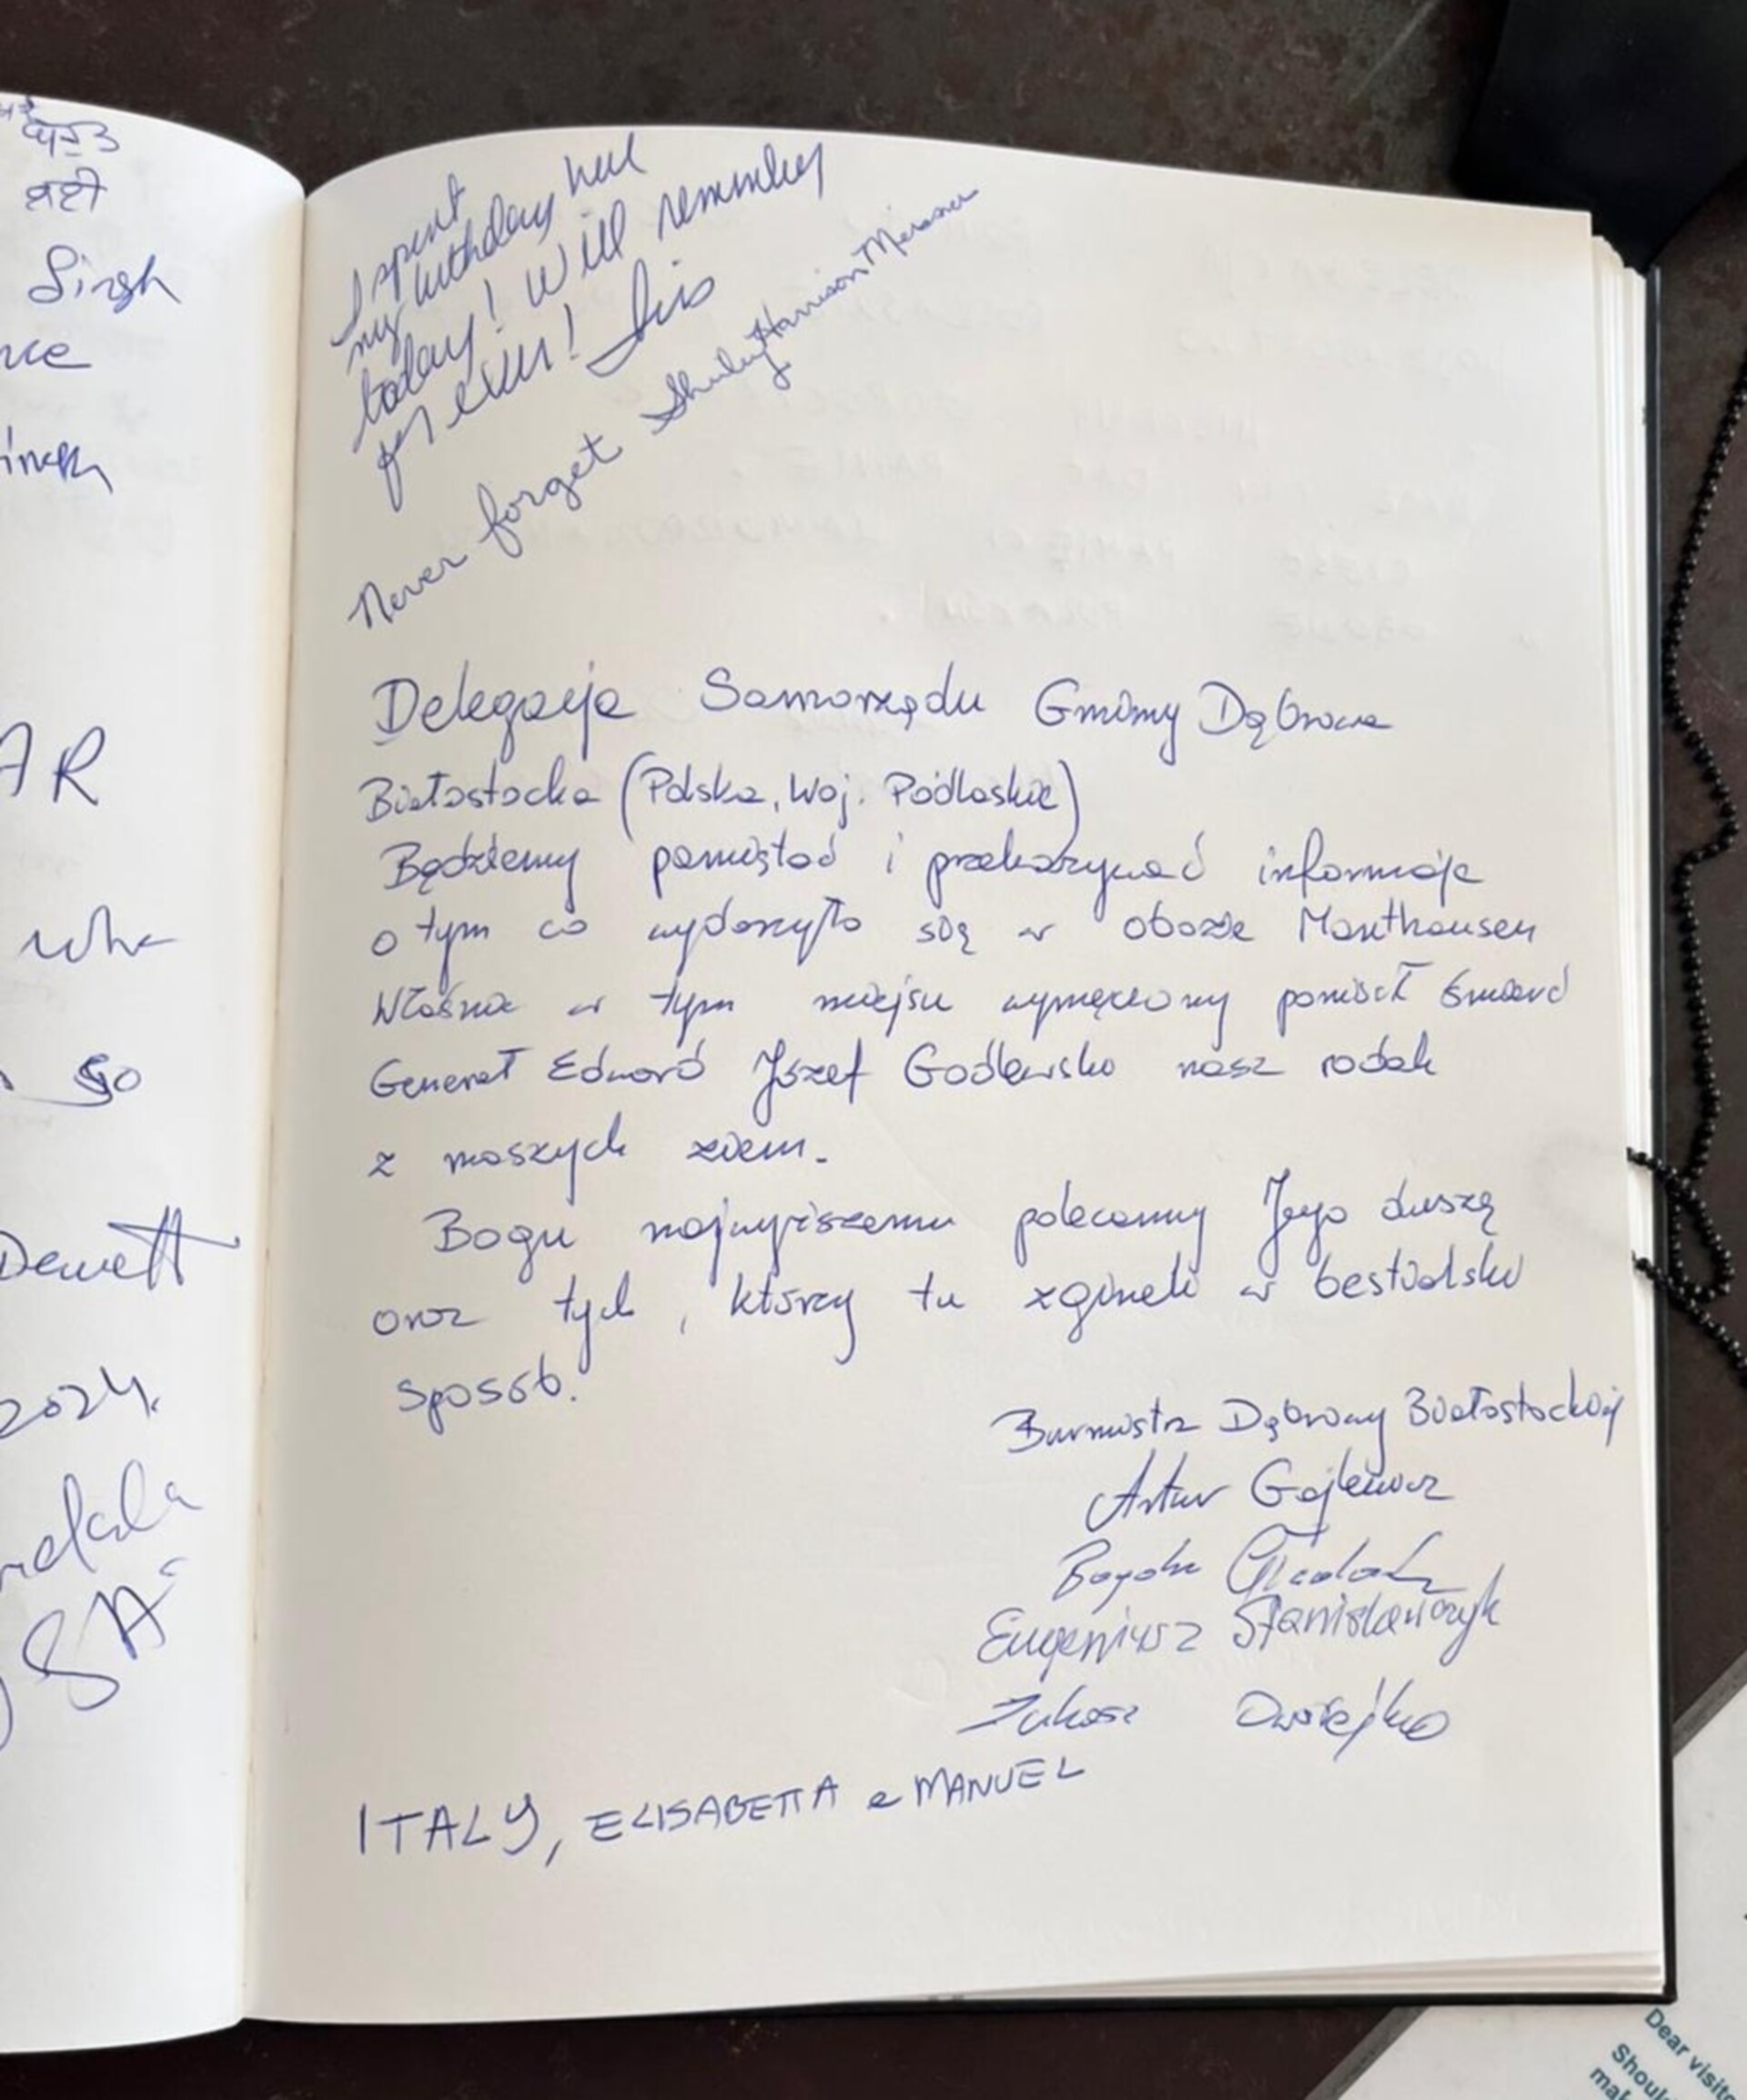 धरती
Singh
AR
so
Dewett
2024.
SA
I spent
my birthday here
today! Will remember
for ever! Iris
Never forget Shirley Harrison
Delegacja Samorządu Gminy Dąbrowa
Białostocka (Polska, Woj. Podlaskie)
Będziemy pamiętać i przekazywać informację
o tym co wydarzyło się w obozie Mauthausen
Właśnie w tym miejscu wymęczony poniósł śmierć
Generał Edward Józef Godlewski nasz rodak
z naszych ziem.
Bogu najwyższemu polecamy Jego duszę
oraz tych, którzy tu zginęli w bestialski
sposób.
Burmistrz Dąbrowy Białostockiej
Artur Gajlewicz
Eugeniusz Stanisławczyk
Łukasz
ITALY, ELISABETTA e MANUEL
Dear